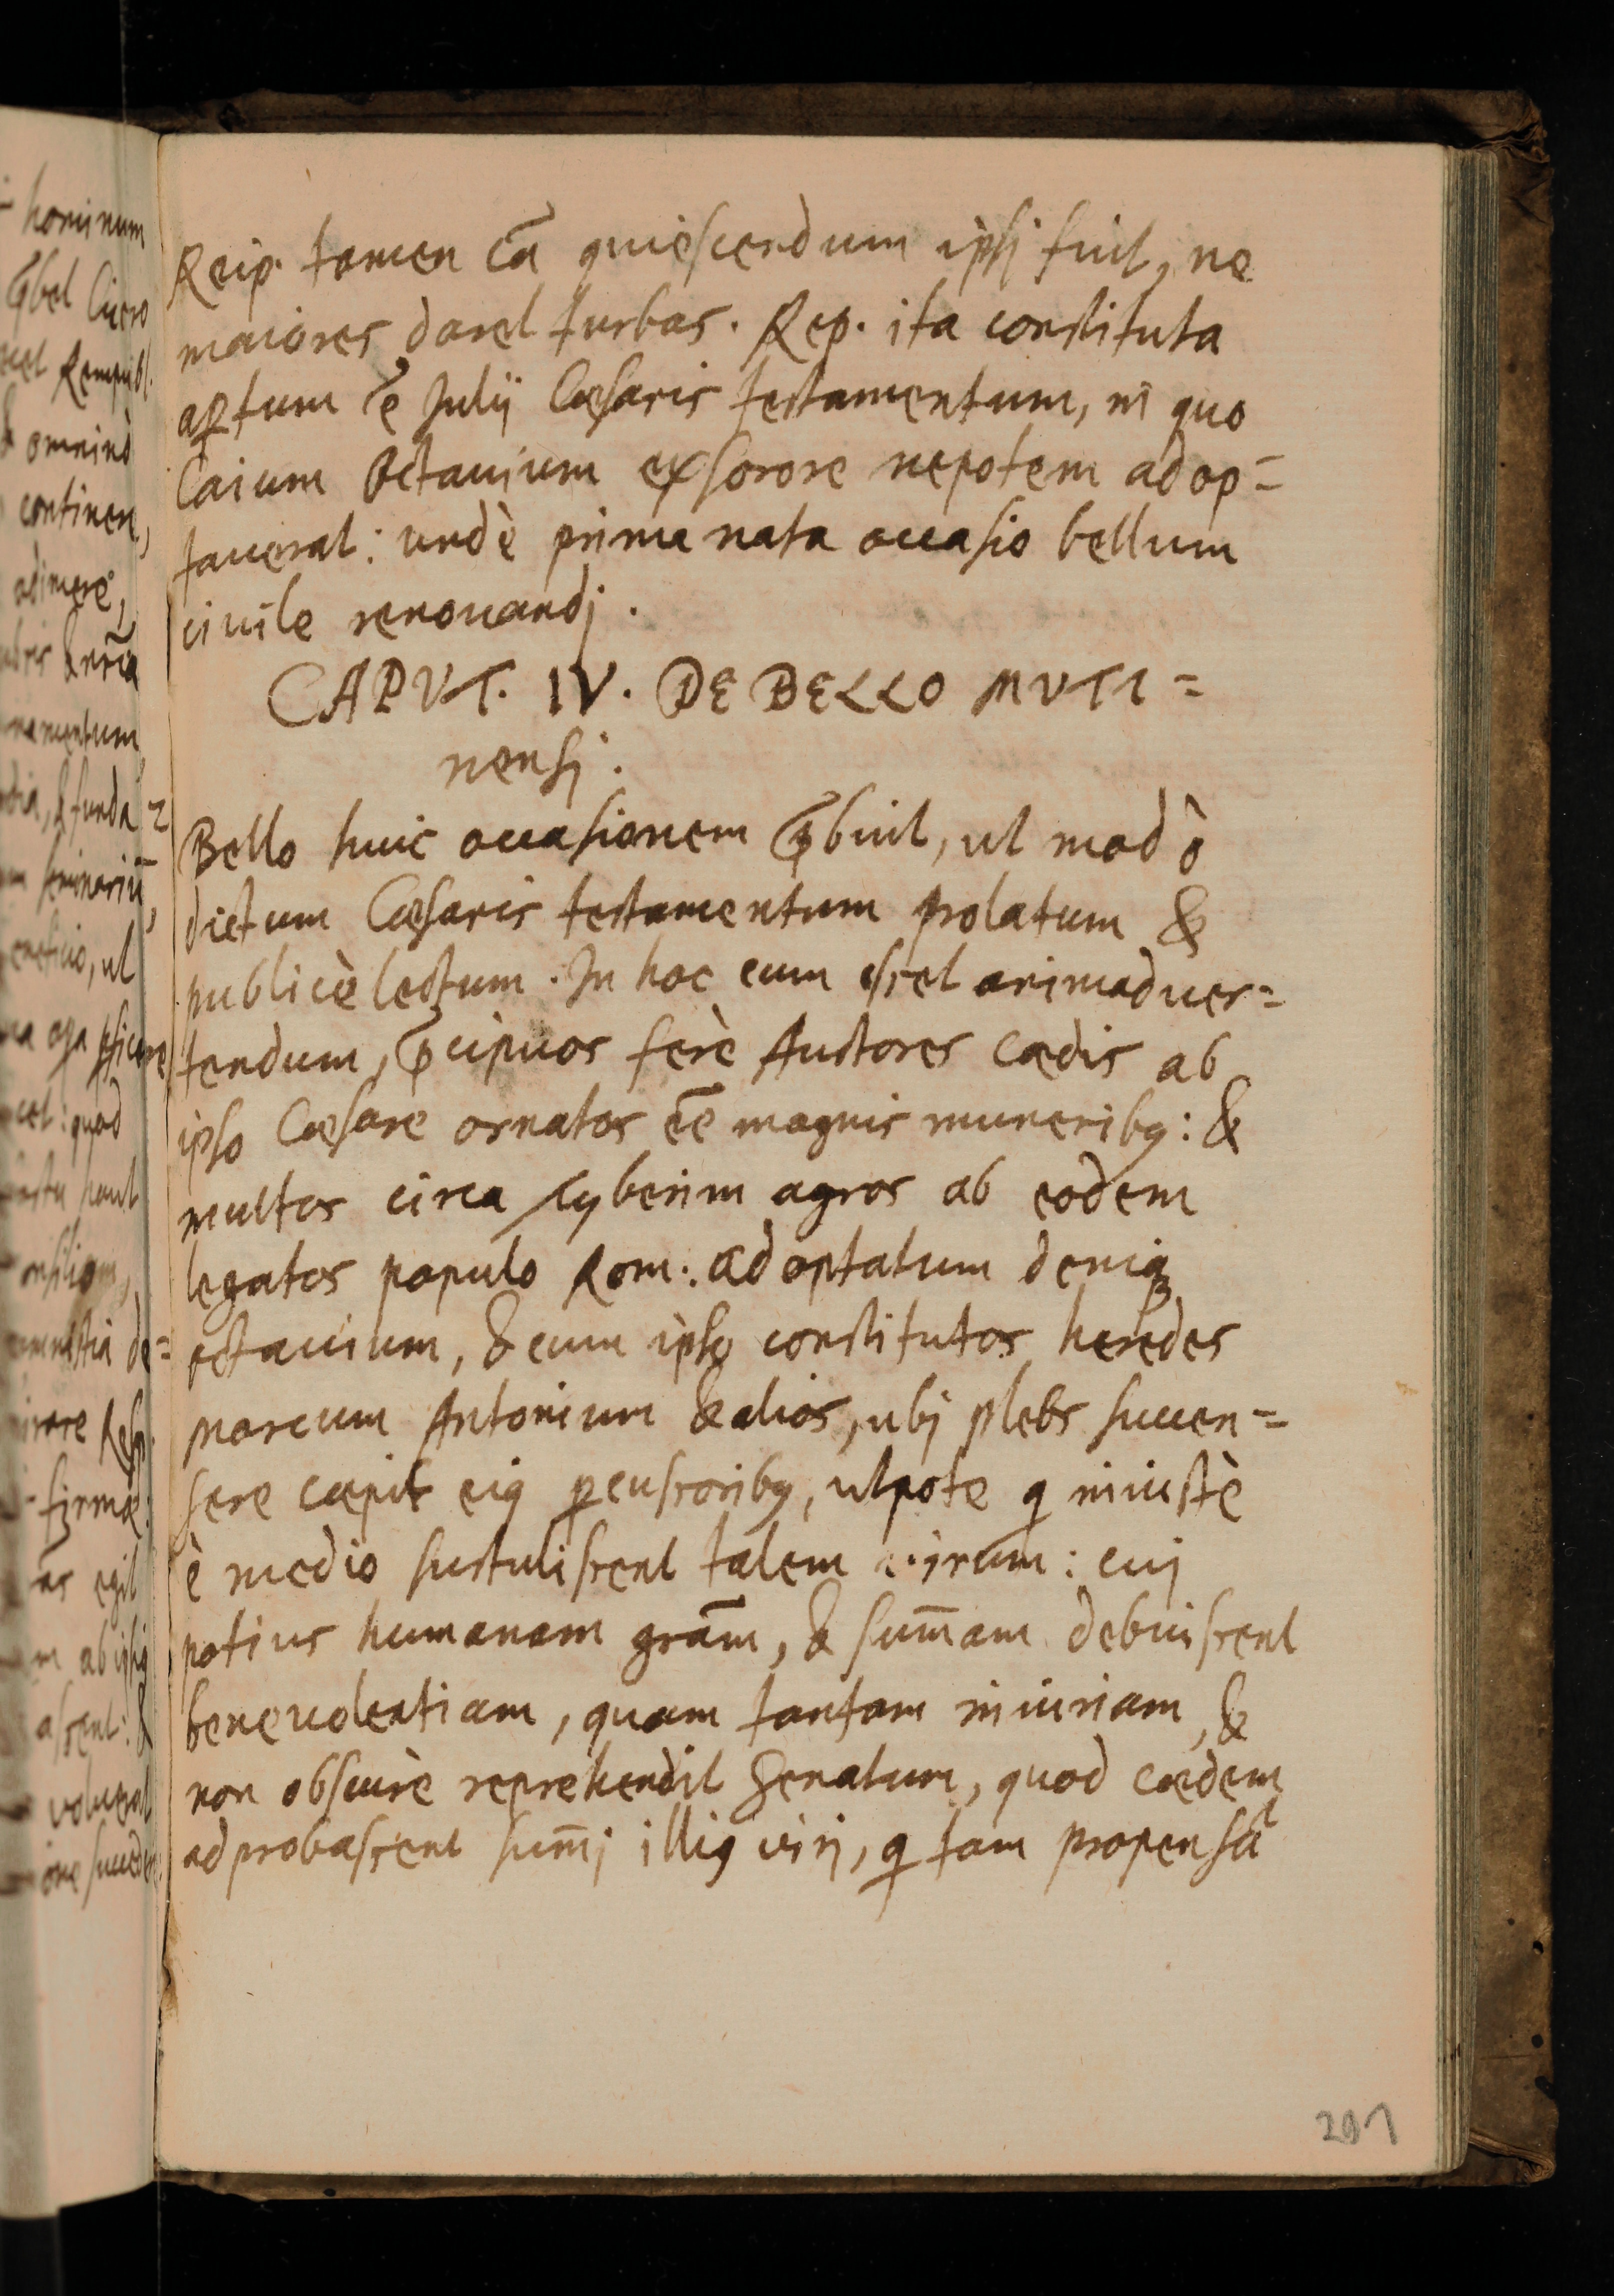 Reip. tamen cā quiescendum ipsj fuit, ne
maiores daret turbas. Rep. ita constituta
aꝑtum ē Julij Cæsaris testamentum, in quo
Caium Octauium ex sorore nepotem adop=
tauerat: undè prima nata occasio bellum
ciuile renouandj.
CAPVT. IV. DE BELLO MVTI=
nensj.
Bello huic occasionem p̄buit, ut modò
dictum Cæsaris testamentum prolatum &
publicè lectum. In hoc cum esset animaduer=
tendum, p̄cipuos ferè Auctores cædis ab
ipso Cæsare ornatos ēē magnis muneribꝰ: &
multos circa Tyberim agros ab eodem
legatos populo Rom: adoptatum deniqꝫ
octauium, & cum ipso constitutos heredes
Marcum Antonium & alios, ubj plebs succen=
sere cæpit eiꝰ ꝑcussoribꝰ, utpote q iniustè
è medio sustulissent talem uirum: cuj
potius humanam grām, & sum̄am debuissent
beneuolentiam, quam tantam iniuriam, &
non obscurè reprehendit Senatum, quod cædem
adprobassent sum̄j illiꝰ virj, q tam propensā
291